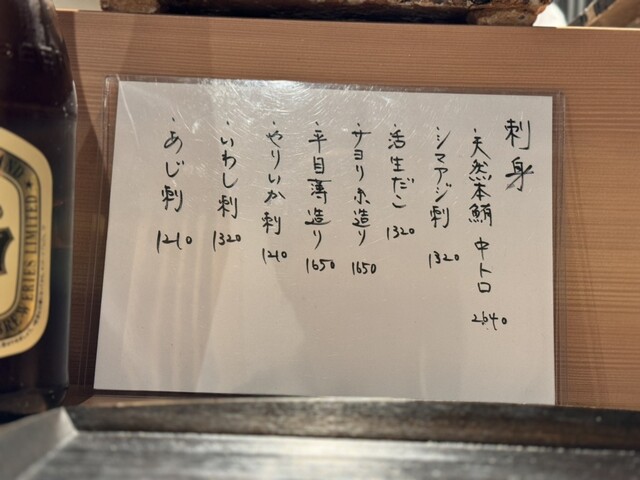 刺身
・天然本鮪 中トロ 2640
・シマアジ刺 1320
・活生だこ 1320
・サヨリ糸造り 1650
・平目薄造り 1650
・やりいか刺 1210
・いわし刺 1320
・あじ刺 1210
BREWERIES LIMITED